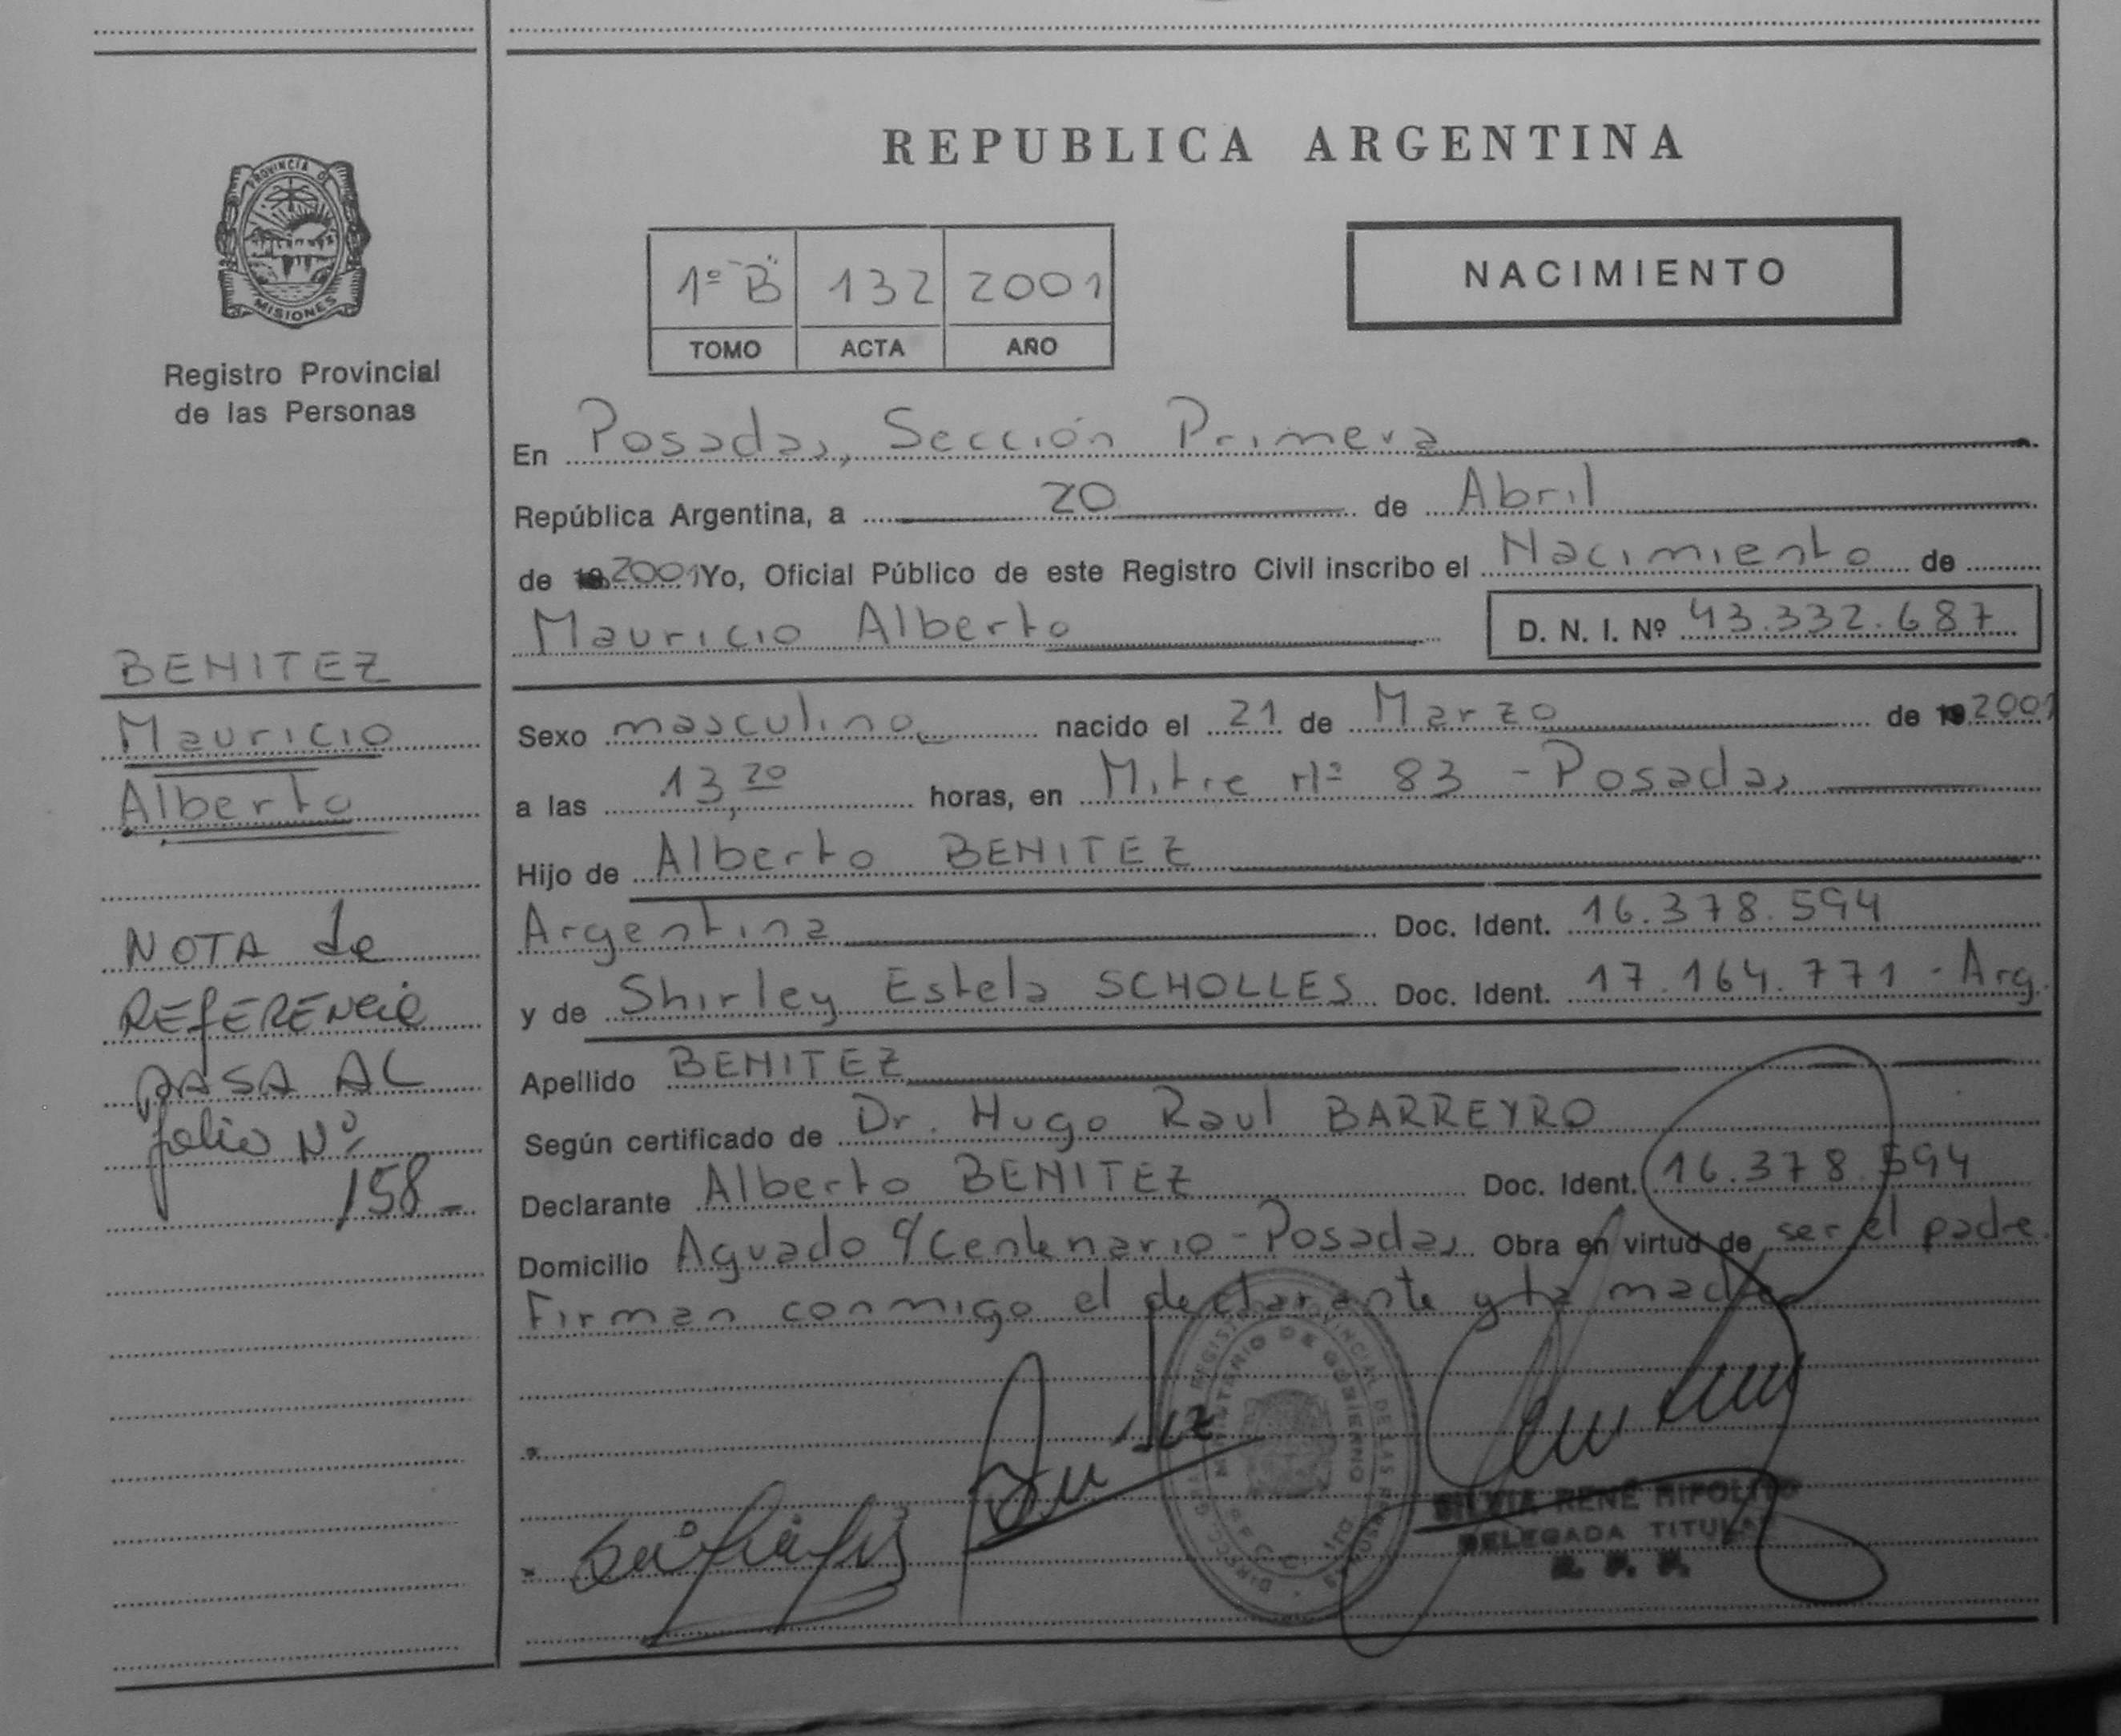 REPUBLICA ARGENTINA
PROVINCIA DE
MISIONES
Registro Provincial
de las Personas
1º "B" 132 2001
TOMO ACTA AÑO
NACIMIENTO
En Posadas, Sección Primera
República Argentina, a 20 de Abril
de 2001 Yo, Oficial Público de este Registro Civil inscribo el Nacimiento de
Mauricio Alberto D. N. I. Nº 43.332.687
BENITEZ
Mauricio
Alberto
Sexo masculino nacido el 21 de Marzo de 2001
a las 13,20 horas, en Mitre nº 83 - Posadas
Hijo de Alberto BENITEZ
Argentina Doc. Ident. 16.378.594
y de Shirley Estela SCHOLLES Doc. Ident. 17.164.771 - Arg.
Apellido BENITEZ
Según certificado de Dr. Hugo Raul BARREYRO
Declarante Alberto BENITEZ Doc. Ident. 16.378.594
Domicilio Aguado y Centenario - Posadas Obra en virtud de ser el padre.
Firman conmigo el declarante y la madre
NOTA de
REFERENCIA
PASA AL
folio Nº
158-
MINISTERIO DE GOBIERNO
SILVIA RENÉ HIPOLITO
DELEGADA TITULAR
R. P. P.